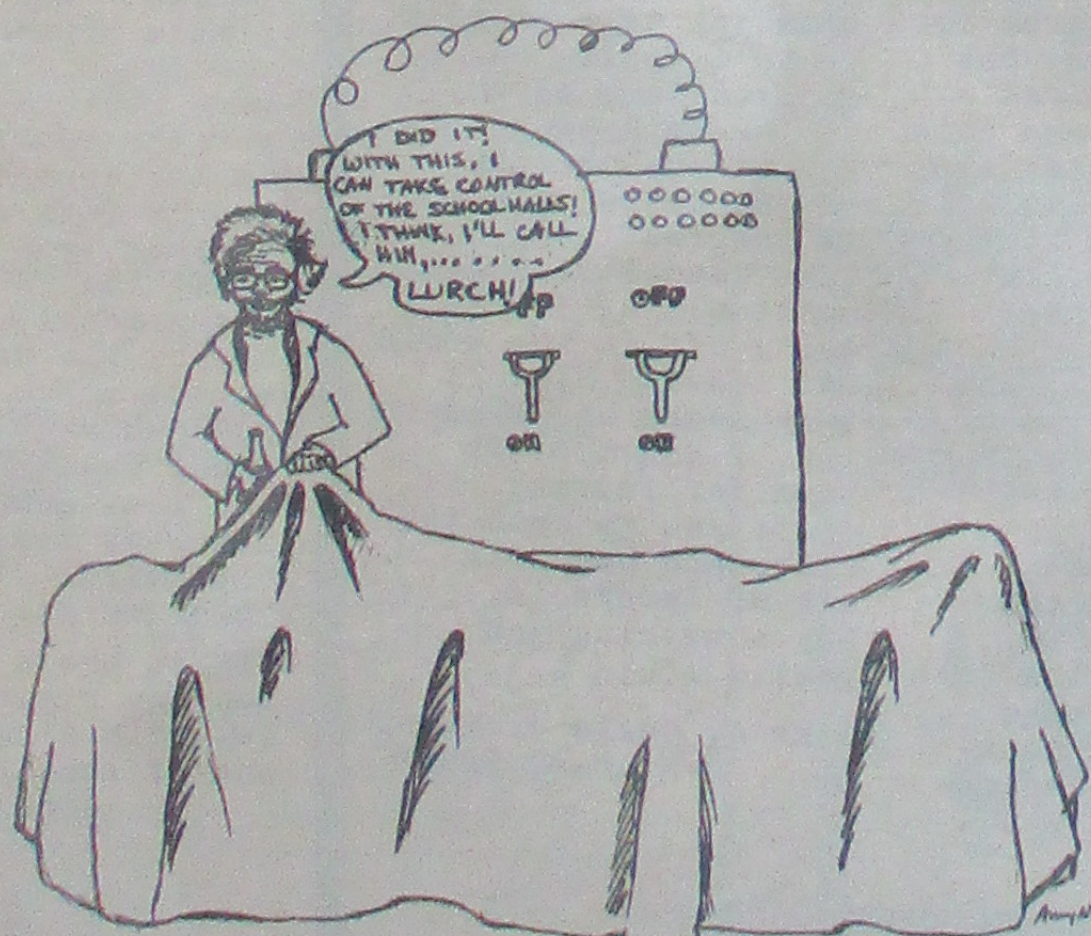 I DID IT!
WITH THIS, I
CAN TAKE CONTROL
OF THE SCHOOL HALLS!
I THINK, I'LL CALL
HIM,.......
LURCH!
OFF
ON
ON